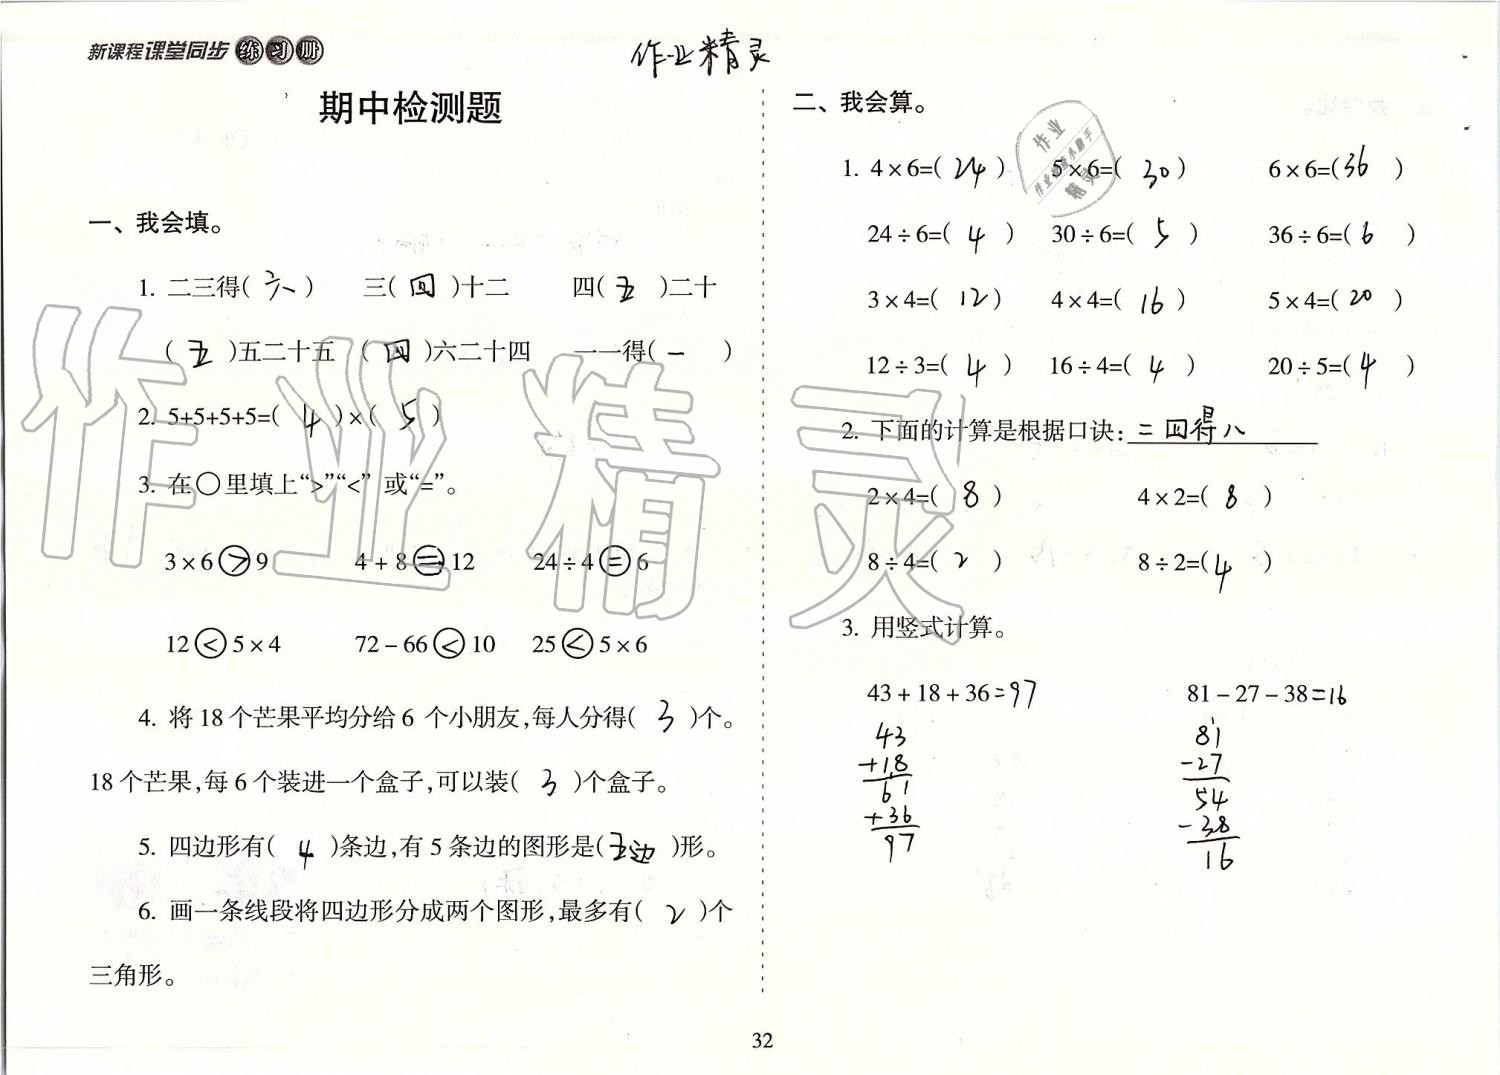 新课程课堂同步练习册
作业精灵
期中检测题
一、我会填。
1. 二三得( 六 ) 三( 四 )十二 四( 五 )二十
( 五 )五二十五 ( 四 )六二十四 一一得( 一 )
2. 5+5+5+5=( 4 )×( 5 )
3. 在○里填上“>”“<”或“=”。
3×6>9 4+8=12 24÷4=6
12<5×4 72-66<10 25<5×6
4. 将18个芒果平均分给6个小朋友,每人分得( 3 )个。
18个芒果,每6个装进一个盒子,可以装( 3 )个盒子。
5. 四边形有( 4 )条边,有5条边的图形是(五边)形。
6. 画一条线段将四边形分成两个图形,最多有( 2 )个
三角形。
二、我会算。
1. 4×6=( 24 ) 5×6=( 30 ) 6×6=( 36 )
24÷6=( 4 ) 30÷6=( 5 ) 36÷6=( 6 )
3×4=( 12 ) 4×4=( 16 ) 5×4=( 20 )
12÷3=( 4 ) 16÷4=( 4 ) 20÷5=( 4 )
2. 下面的计算是根据口诀:二四得八
2×4=( 8 ) 4×2=( 8 )
8÷4=( 2 ) 8÷2=( 4 )
3. 用竖式计算。
43+18+36=97 81-27-38=16
43 81
+18 -27
61 54
+36 -38
97 16
32
作业精灵
作业
作业检查小助手
精灵